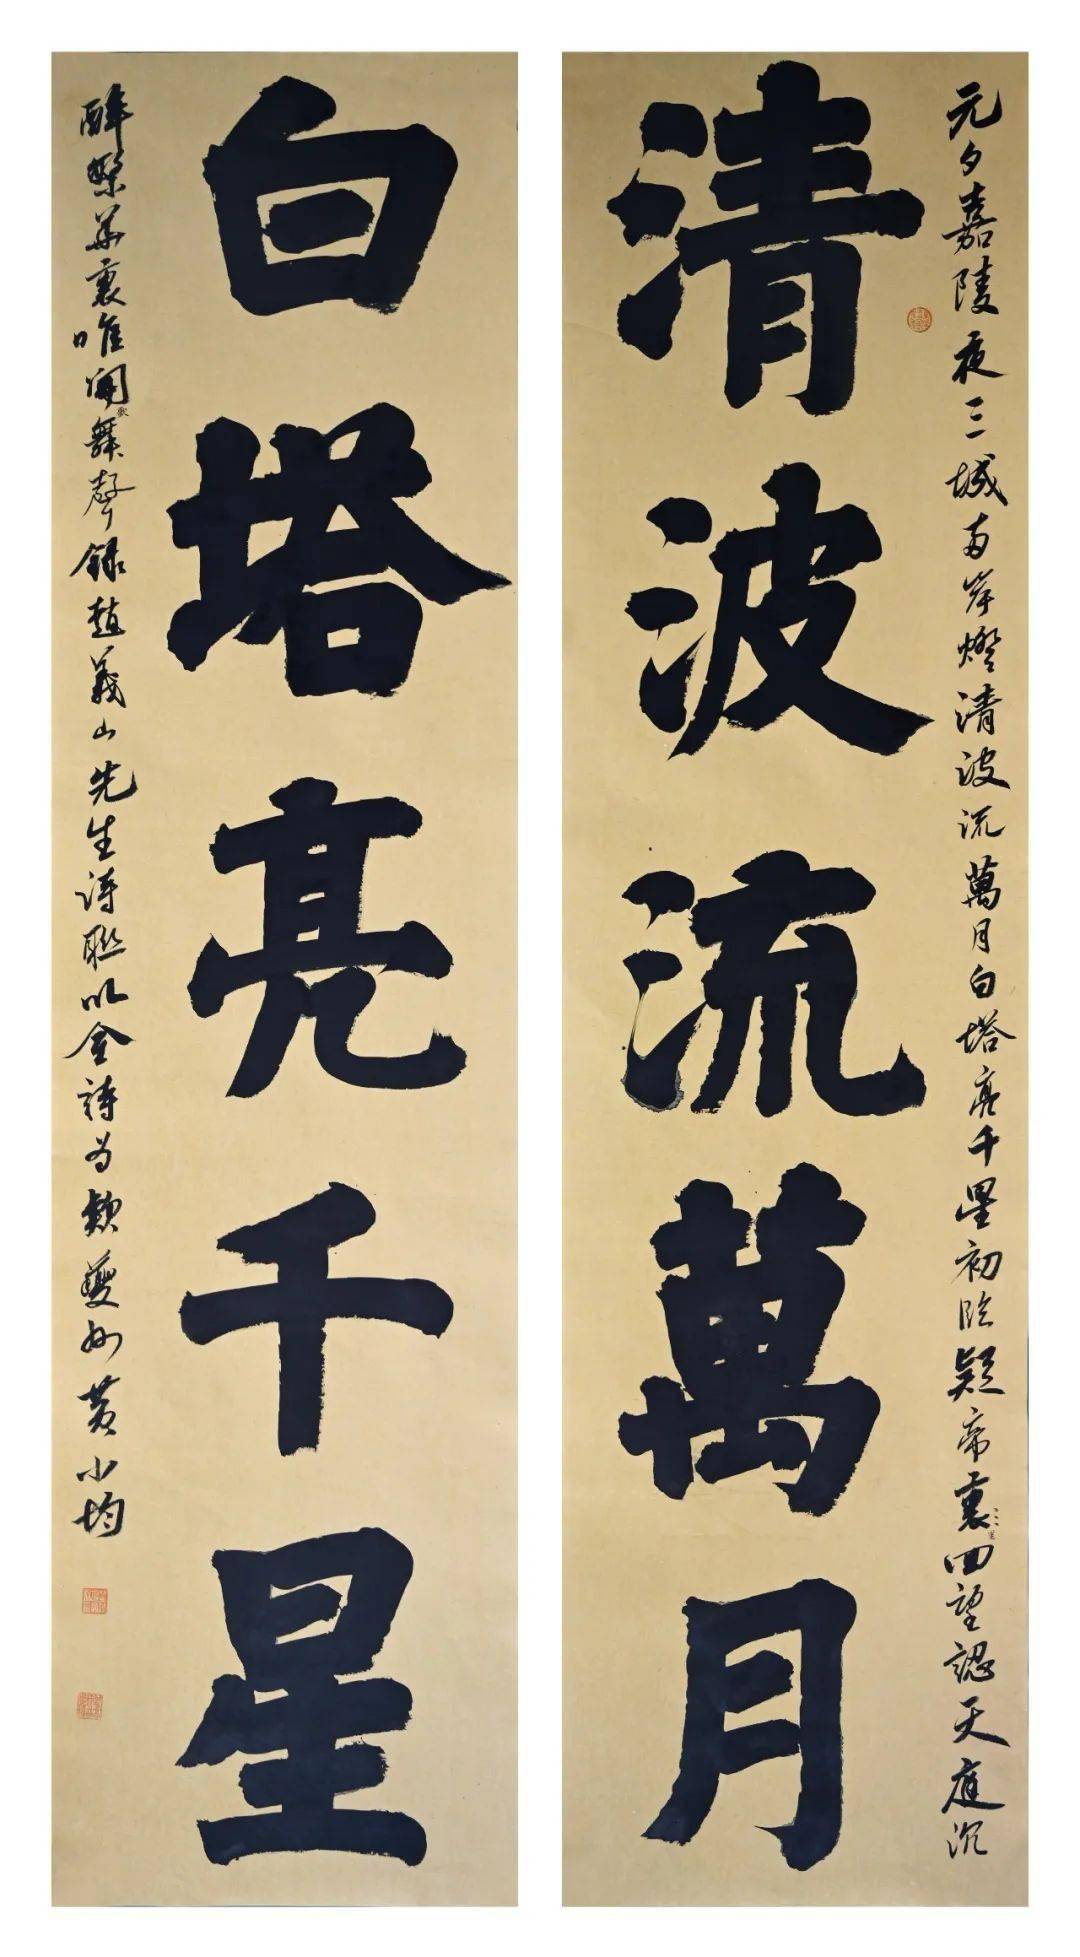 元夕嘉陵夜三城兩岸燈清波流萬月白塔亮千星初臨疑帝裏回望認天庭沉
清波流萬月
白塔亮千星
醉繁華裏唯聞歌舞聲錄趙義山先生詩聯以全詩為款夔州黃小均